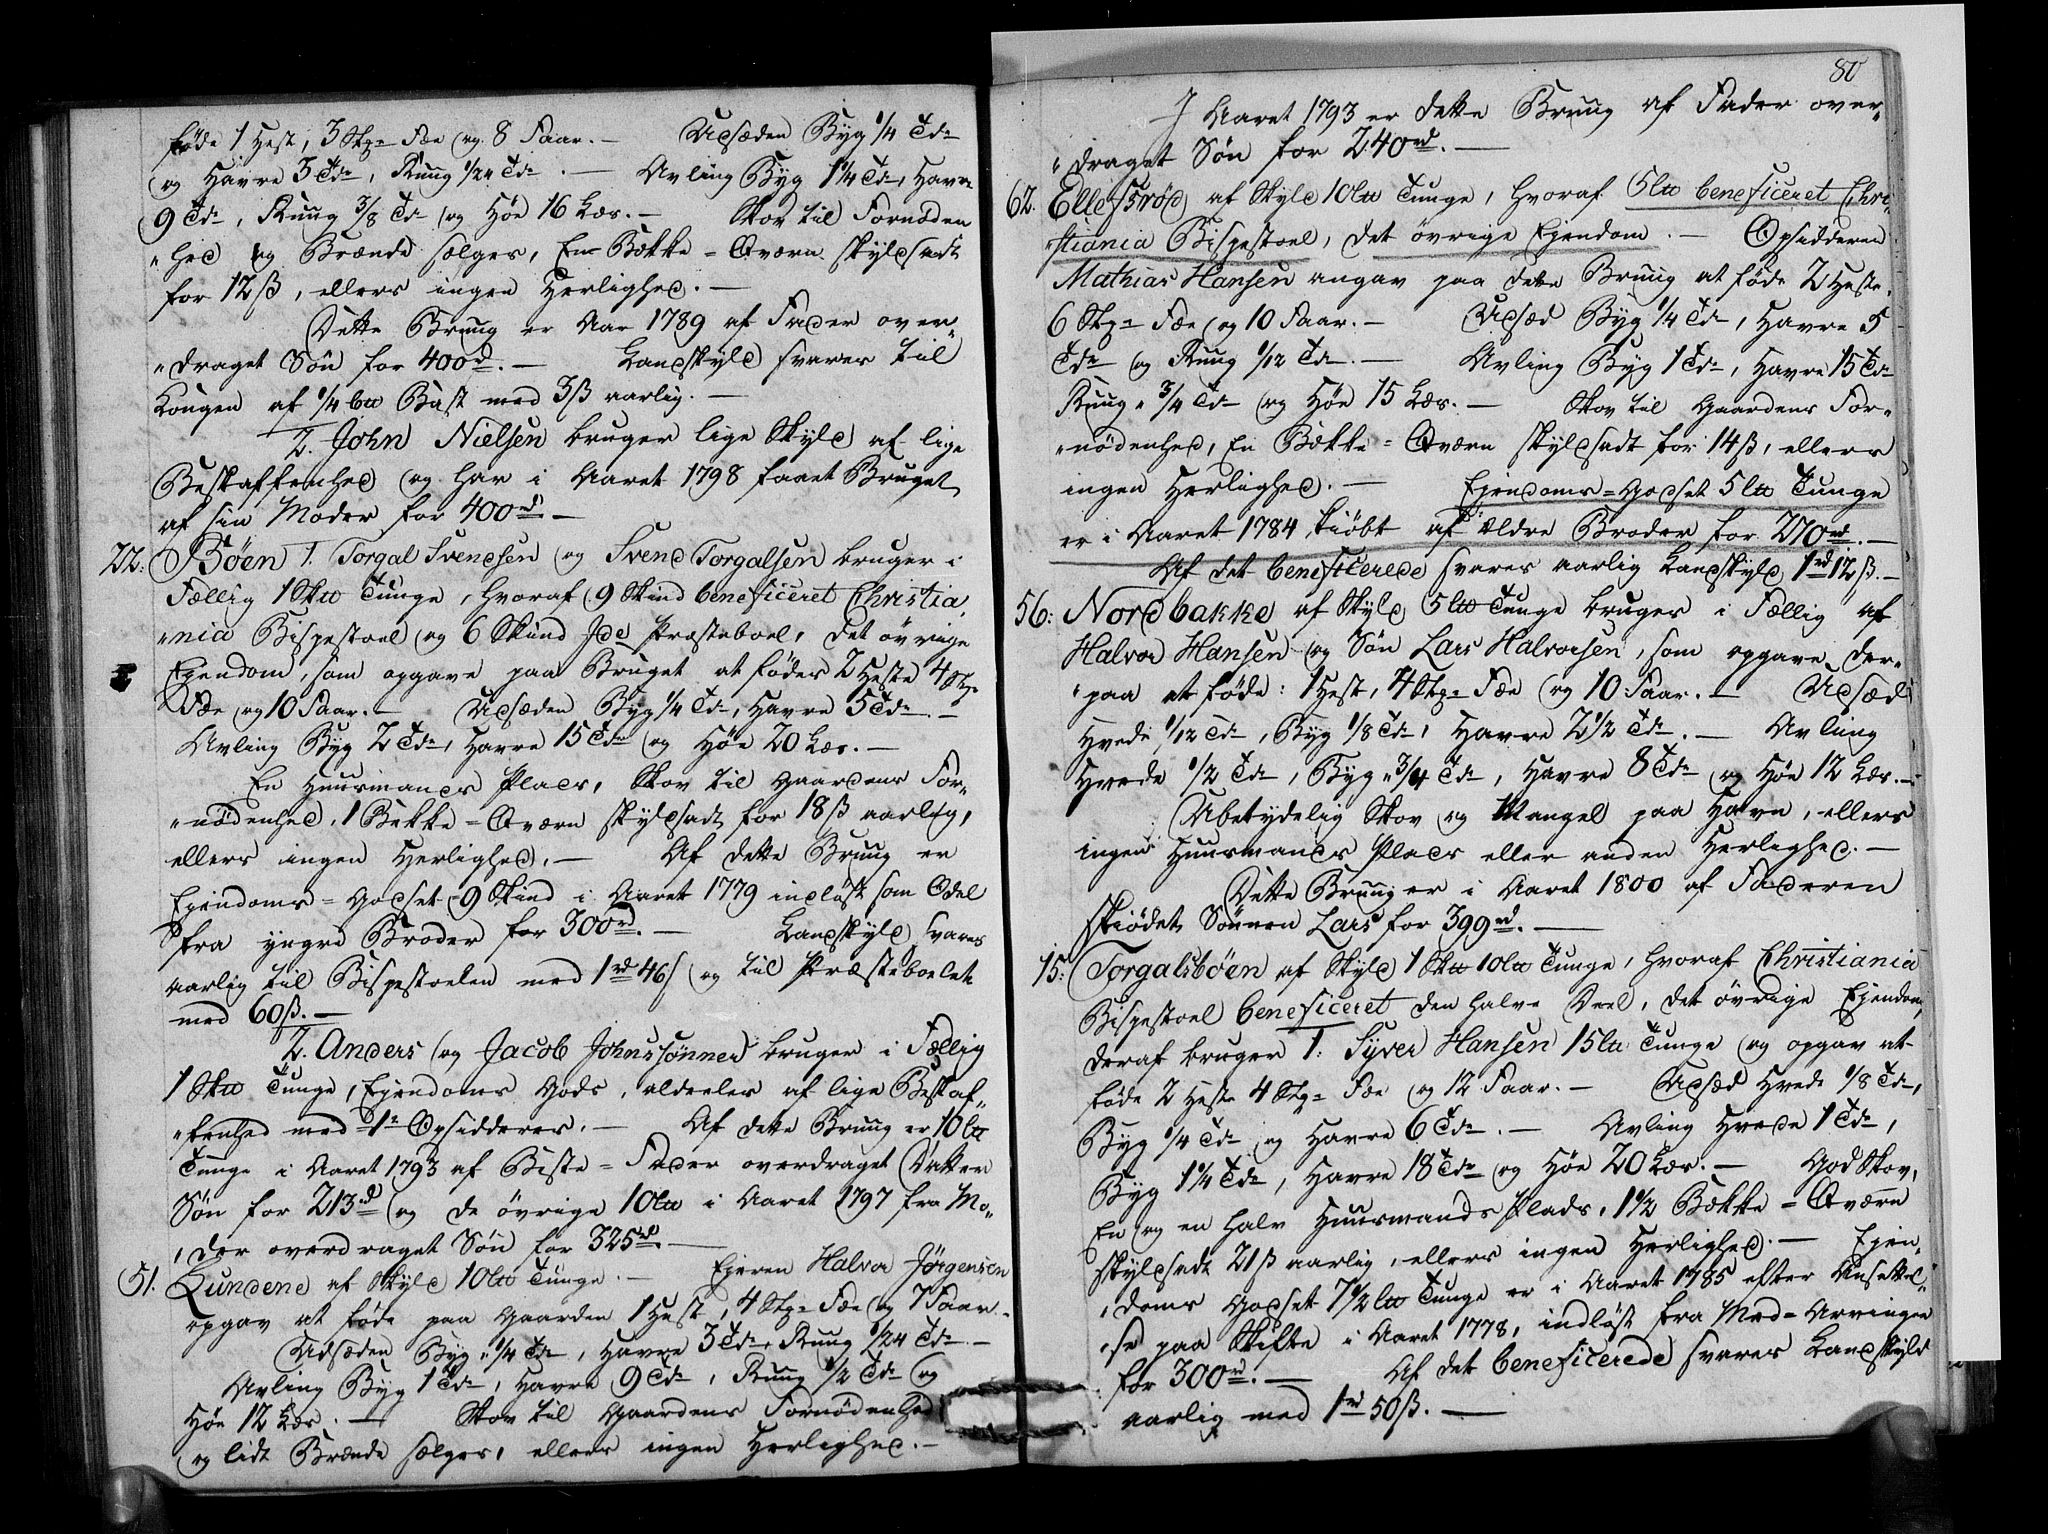 föde 1 Hest, 3 Stz= Fæe og 8 Faar. — Udsæden Byg 1/4 Tde
og Havre 3 Tde, Ruug 1/24 Tde. — Avling Byg 1 1/4 Tde, Havre
9 Tde, Ruug 3/8 Tde og Höe 16 Læs. — Skov til Fornøden
„hed og Brænde sælges, En Bække = Qværn skyldsadt
for 12 ß, ellers ingen Herlighed. —
Dette Bruug er Aar 1789 af Fader over„
„draget Sön for 400 rd. — Landskyld svares til
Kongen af 1/4 ltt Bast med 3 ß aarlig. —
2. John Nielsen bruger lige Skyld af lige
Beskaffenhed og har i Aaret 1798 faaet Bruget
af sin Moder for 400 rd. —
22. Böen 1. Torgal Svendsen og Svend Torgalsen bruger i
Fællig 1 Sktt Tunge, hvoraf 9 Skind beneficeret Christia„
„nia Bispestoel og 6 Skind Ide Præsteboel, det övrige
Ejendom, som opgave paa Bruget at föder 2 Heste 4 Stz=
Fæe og 10 Faar. — Udsæden Byg 1/4 Tde, Havre 5 Tde. —
Avling Byg 2 Tde, Havre 15 Tde og Höe 20 Læs. —
En Huusmands Plads, Skov til Gaardens For„
„nödenhed, 1 Bekke = Qværn skyldsadt for 18 ß aarlig,
ellers ingen Herlighed. — Af dette Bruug er
Ejendoms = Godset 9 Skind i Aaret 1779 indlöst som Odel
fra yngre Broder for 300 rd. — Landskyld svares
aarlig til Bispestoelen med 1 rd 46 ß og til Præsteboelet
med 60 ß. —
2. Anders og Jacob Johnssönner bruger i Fællig
1 Sktt Tunge, Ejendoms Gods, aldeeles af lige Beskaf„
„fenhed med 1e Opsidderes. — Af dette Bruug er 10 ltt
Tunge i Aaret 1793 af Beste = Fader overdraget Datter
Sön for 213 rd og de övrige 10 ltt i Aaret 1797 fra Mo„
„der overdraget Sön for 325 rd. —
51. Lundene af Skyld 10 ltt Tunge. — Ejeren Halvor Jörgensen
opgav at föde paa Gaarden 1 Hest, 4 Stz= Fæe og 7 Faar.
Udsæden Byg „ 1/4 Tde, Havre 3 Tde, Ruug 1/24 Tde. —
Avling Byg 1 Tde, Havre 9 Tde, Ruug 1/2 Tde og
Höe 12 Læs. — Skov til Gaardens Fornödenhed
og lidt Brænde sælges, ellers ingen Herlighed. —
80
I Aaret 1793 er dette Bruug af Fader over„
„draget Sön for 240 rd. —
62. Ellefsröd af Skyld 10 ltt Tunge, hvoraf 5 ltt beneficeret Chri„
„stiania Bispestoel, det övrige Ejendom. — Opsidderen
Mathias Hansen angav paa dette Bruug at föde 2 Heste,
6 Stz= Fæe og 10 Faar. — Udsæd Byg 1/4 Tde, Havre 5
Tde og Ruug 1/12 Tde. — Avling Byg 1 Tde, Havre 15 Tde
Ruug „ 3/4 Tde og Höe 15 Læs. — Skov til Gaardens For„
„nödenhed, En Bække = Qværn skyldsadt for 14 ß, ellers
ingen Herlighed. — Ejendoms = Godset 5 ltt Tunge
er i Aaret 1784 kiöbt af ældre Broder for 270 rd. —
Af det beneficerede svares aarlig Landskyld 1 rd 12 ß. —
56: Nordbakke af Skyld 5 ltt Tunge bruges i Fællig af
Halvor Hansen og Sön Lars Halvorsen, som opgave der„
„paa at föde: 1 Hest, 4 Stz= Fæe og 10 Faar. — Udsæd
Hvede 1/12 Tde, Byg 1/8 Tde, Havre 2 1/2 Tde. — Avling
Hvede 1/2 Tde, Byg „ 3/4 Tde, Havre 8 Tde og Höe 12 Læs. —
Ubetydelig Skov og Mangel paa Havn, ellers
ingen Huusmands Plads eller anden Herlighed. —
Dette Bruug er i Aaret 1800 af Faderen
skiödet Sönnen Lars for 399 rd. —
15: Torgalsböen af Skyld 1 Sktt 10 ltt Tunge, hvoraf Christiania
Bispestoel beneficeret den halve Deel, det övrige Ejendom,
deraf bruger 1: Syver Hansen 15 ltt Tunge og opgav at
föde 2 Heste 4 Stz= Fæe og 12 Faar. — Udsæd Hvede 1/8 Tde,
Byg 1/4 Tde og Havre 6 Tde. — Avling Hvede 1 Tde,
Byg 1 1/4 Tde, Havre 18 Tde og Höe 20 Læs. — God Skov,
En og en halv Huusmands Plads, 1 1/2 Bække = Qværn
skyldsadt 21 ß aarlig, ellers ingen Herlighed. — Ejen„
„doms Godset 7 1/2 ltt Tunge er i Aaret 1785 efter Ansættel„
„se paa Skifte i Aaret 1778, indlöst fra Med = Arvinger
for 300 rd. — Af det beneficerede svares Landskyld
aarlig med 1 rd 50 ß. —